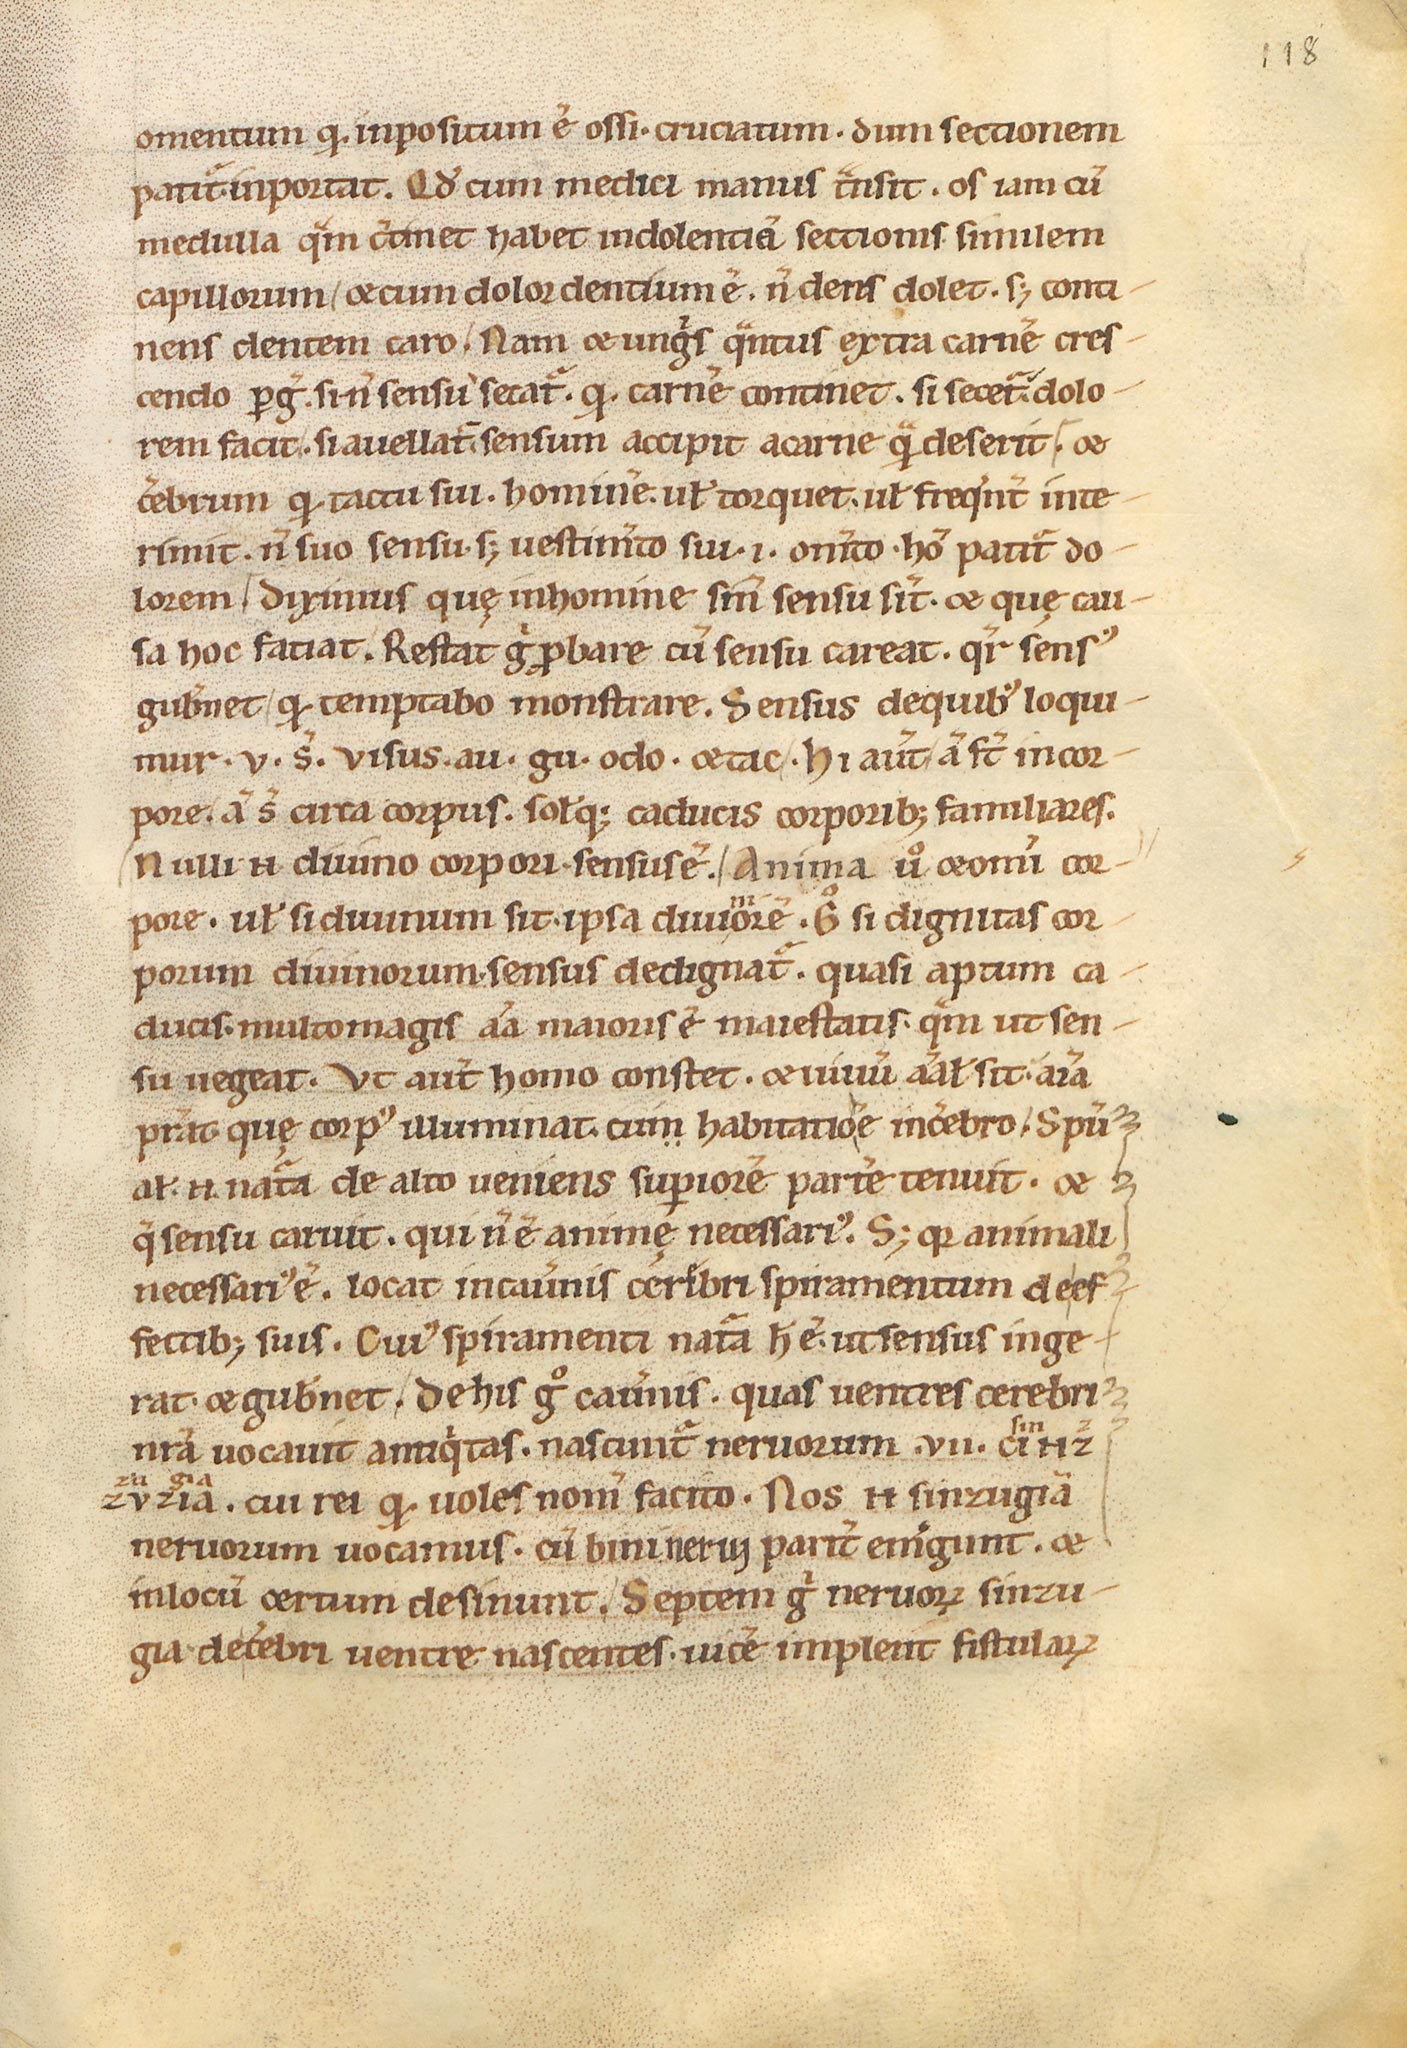 118
omentum q̢. inpositum ē ossi. cruciatum. dum sectionem
patit᷑ inportat. Qđ cum medici manus t᷑nsit. os iam cū
medulla q̄m ꝯtinet habet indolentiā sectionis similem
capillorum / & cum dolor dentium ē. n̄ dens dolet. sꝫ conti-
nens dentem caro. Nam & ung̍s qͣntus extra carnē cres-
cendo ꝑg̍. sin̄ sensu secat᷑. q̢. carnē continet. si secet᷑ dolo-
rem facit. si auellat᷑ sensum accipit a carne qͣ deserit. &
c̄ebrum q̢ tactu sui. hominē. uł torquet. uł freq̍nt̄ inte-
rimit. n̄ suo sensu. sꝫ uestim̄to sui .i. om̄to. hō patit᷑ do-
lorem / Diximus quę in homine sin̄ sensu sīt. & quę cau-
sa hoc faciat. Restat g̍ ꝓbare cū sensu careat. qr̄ sensꝰ
gub̄net / q̢ temptabo monstrare. Sensus de quibꝰ loqui-
mur. v. s̄. visus. au. gu. odo. & tac. hi aūt / ā st̄ in cor-
pore. ā s̄ circa corpus. soliqꝫ caducis corporibꝫ familiares.
Nulli n̄ diuino corpori sensus ē. / Anima uͦ & omī cor-
pore. uł si diuinum sit. ipsa diuīorē. Gͦ si dignitas cor-
porum diuinorum sensus dedignat᷑. quasi aptum ca-
ducis. multo magis aīa maioris ē maiestatis. q̄m ut sen-
su uegeat. Vt aūt homo constet. & uiuū aīał sit. aīa
p̄rat quę corpꝰ illuminat. cum habitatiōe in c̄ebro. Spū
ał n̄ nat᷑a de alto ueniens suꝑiorē partē tenuit. &
q̄ sensu caruit. qui n̄ ē animę necessariꝰ. Sꝫ q̢ animali
necessariꝰ ē. locat in cau̅nis cerebri spiramentum de ef
fectibꝫ suis. Cuiꝰ spiramenti nat᷑a h̄ ē. ut sensus inge-
rat. & gub̄net. De his gͦ cau̅nis. quas uentres cerebri
nr̄a uocauit antiq̍tas. nascunt᷑ neruorum .vii. cin n̄ z̄
sin
zu gia
zv zia. cui rei q̢ uoles nom̄ facito. Nos n̄ sinzugiā
neruorum uocamus. cū bini nerui parit̄ em̄gunt. &
in locū certum desinunt. Septem g̍ neruoꝝ sinzu-
gia de c̄ebri uentre nascentes. uicē implent fistulaꝝ